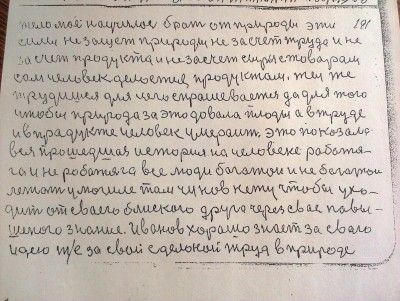 тело моё научилось брат от природы эти 191
сили не защет природы не за счет труда и не
за счет продукта и не за счет сырья товарам
сам человек делается продуктам. так же
трудимся для чего спрашевается да для того
чтобы природа за это довала плоды а в труде
и в прадукте человек умерает, это показала
вся прошедшая история на человеке работя-
га и не работяга все люди богатои и не богатои
лежат у могиле там чинов нету чтобы ухо-
дит от сваего блиского друга через свае павы-
шеного знание. Иванов хорошо знает за сваю
идею т/е за свой сделоной труд в природе